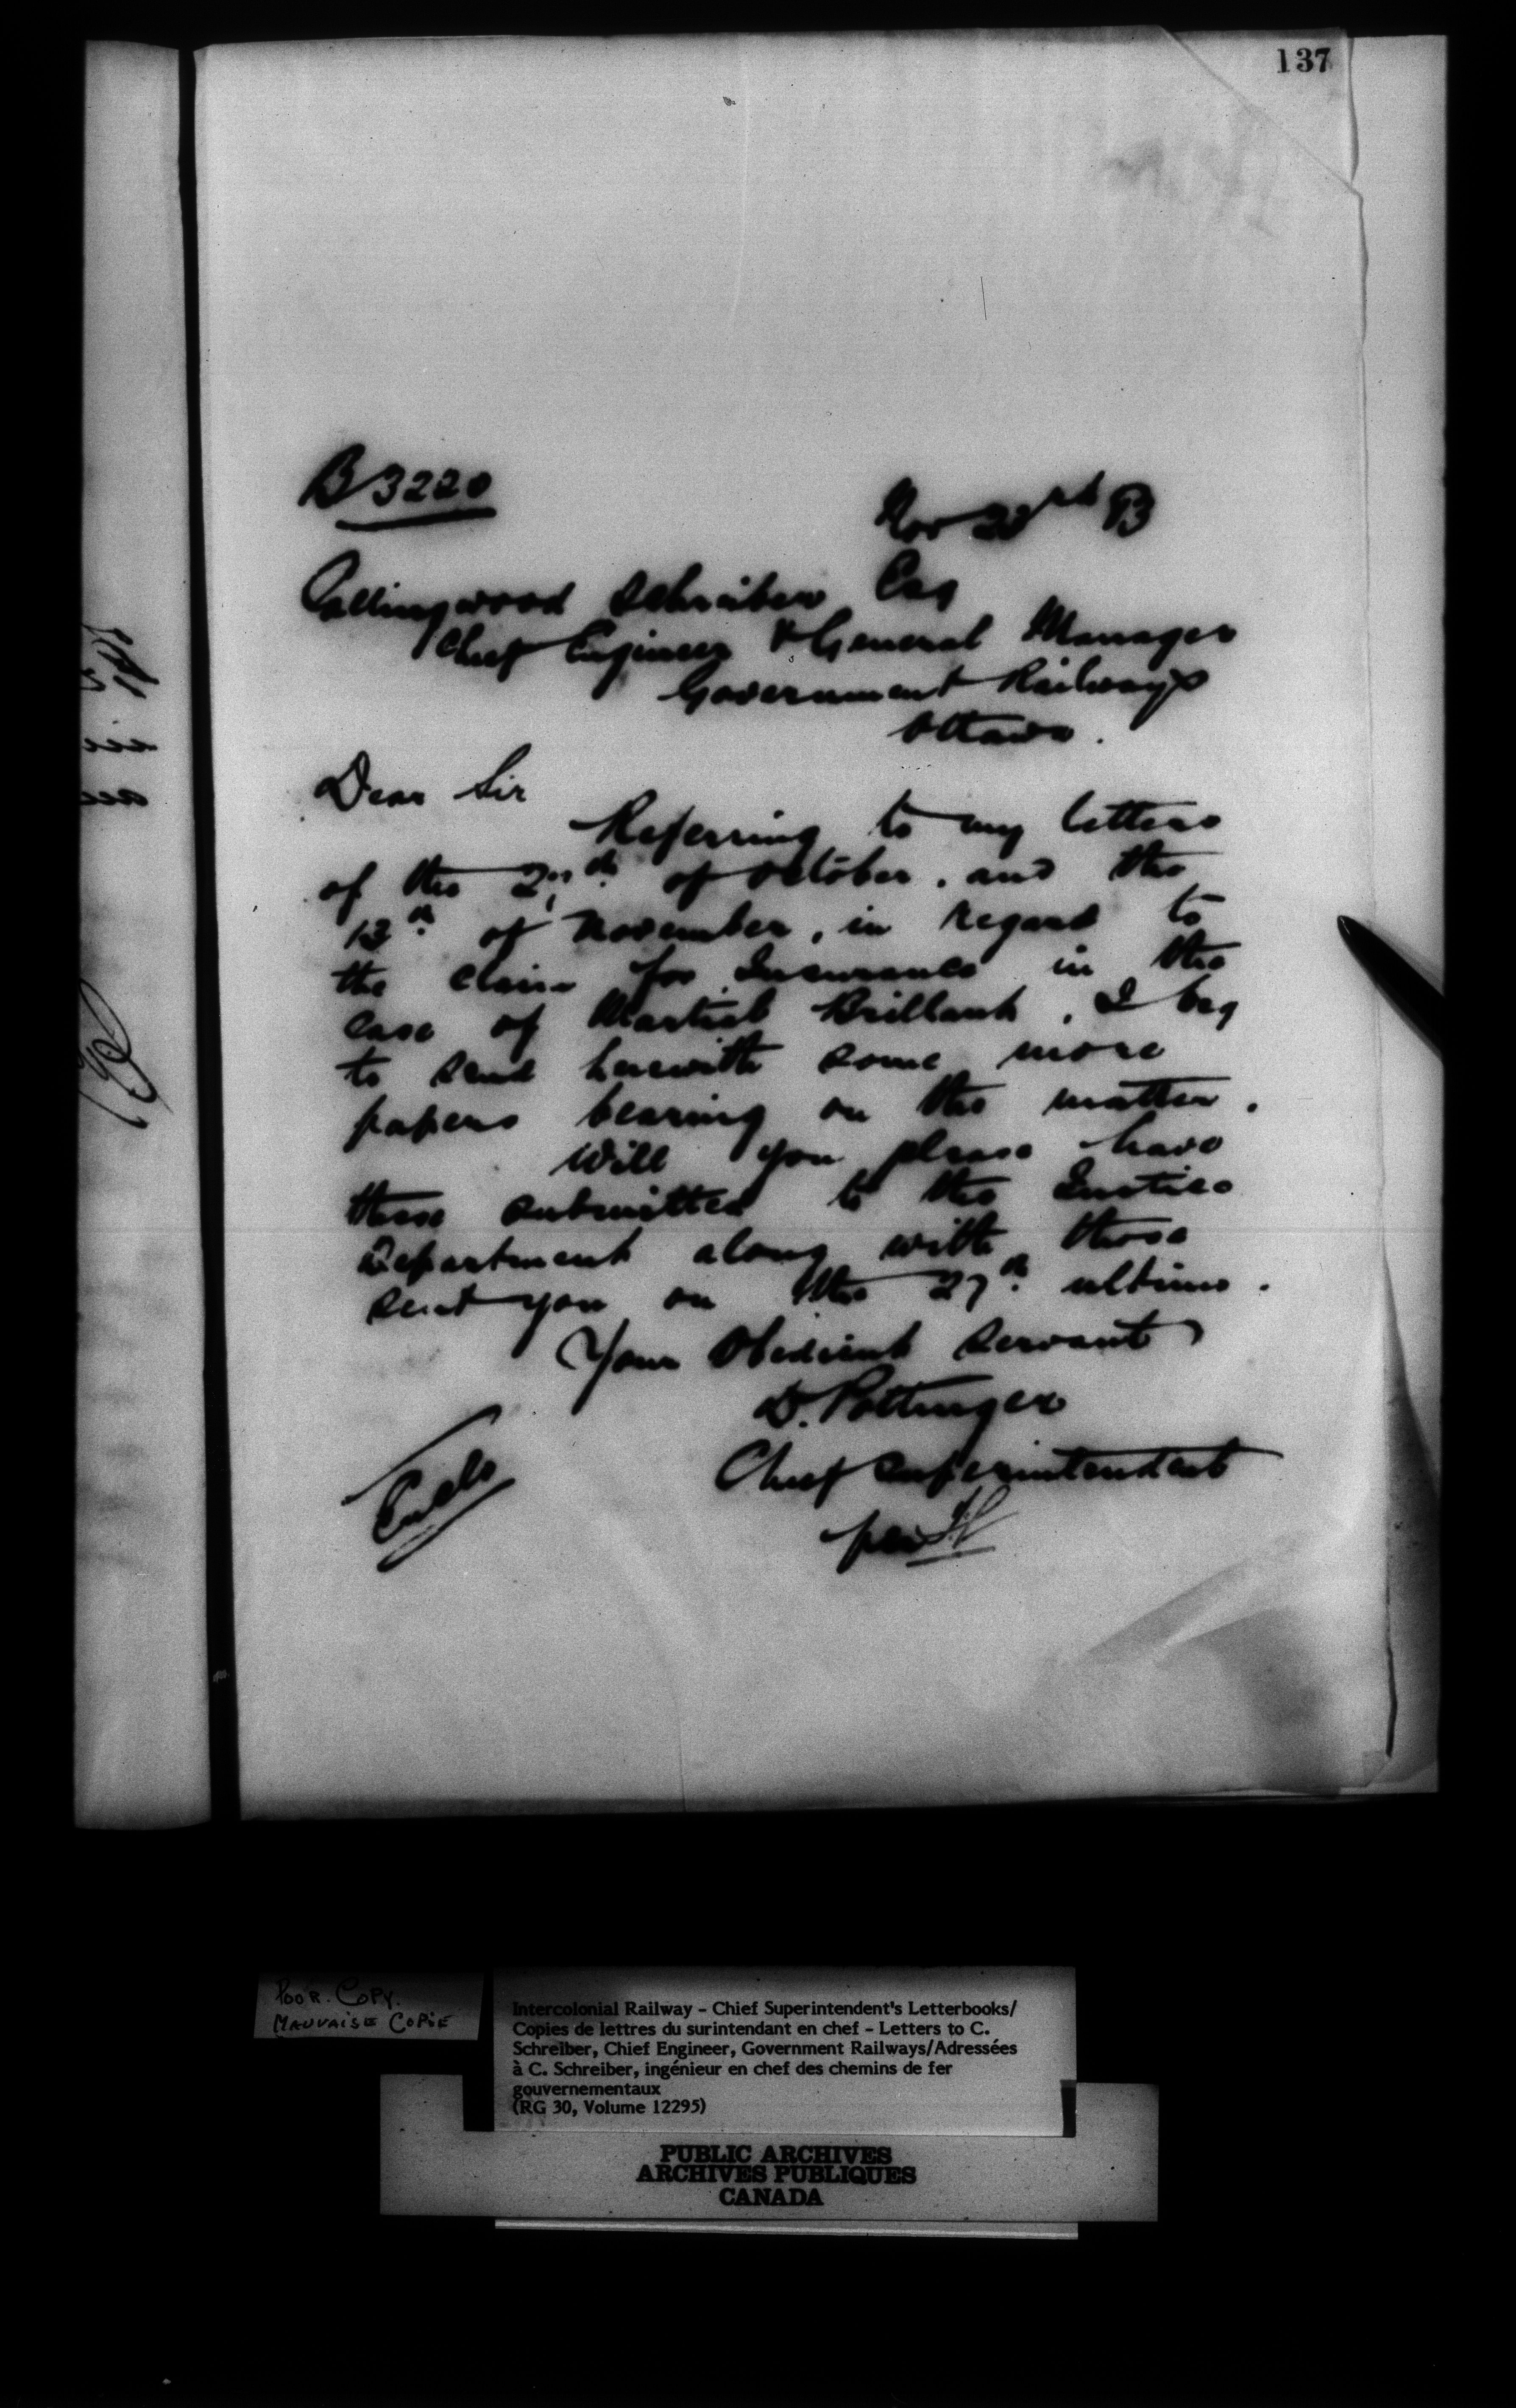 137
B 3220
Nov 23rd 83
Collingwood Schreiber Esq
Chief Engineer & General Manager
Government Railways
Ottawa.
Dear Sir
Referring to my letters
of the 27th of October, and the
13th of November, in regard to
the claim for Insurance in the
case of Martial Brillant, I beg
to send herewith some more
papers bearing on the matter.
Will you please have
these submitted to the Justice
Department along with those
sent you on the 27th ultimo.
Your Obedient Servant
D. Pottinger
Chief Superintendent
per
Encls
POOR. COPY.
MAUVAISE COPIE
Intercolonial Railway - Chief Superintendent's Letterbooks/
Copies de lettres du surintendant en chef - Letters to C.
Schreiber, Chief Engineer, Government Railways/Adressées
à C. Schreiber, ingénieur en chef des chemins de fer
gouvernementaux
(RG 30, Volume 12295)
PUBLIC ARCHIVES
ARCHIVES PUBLIQUES
CANADA